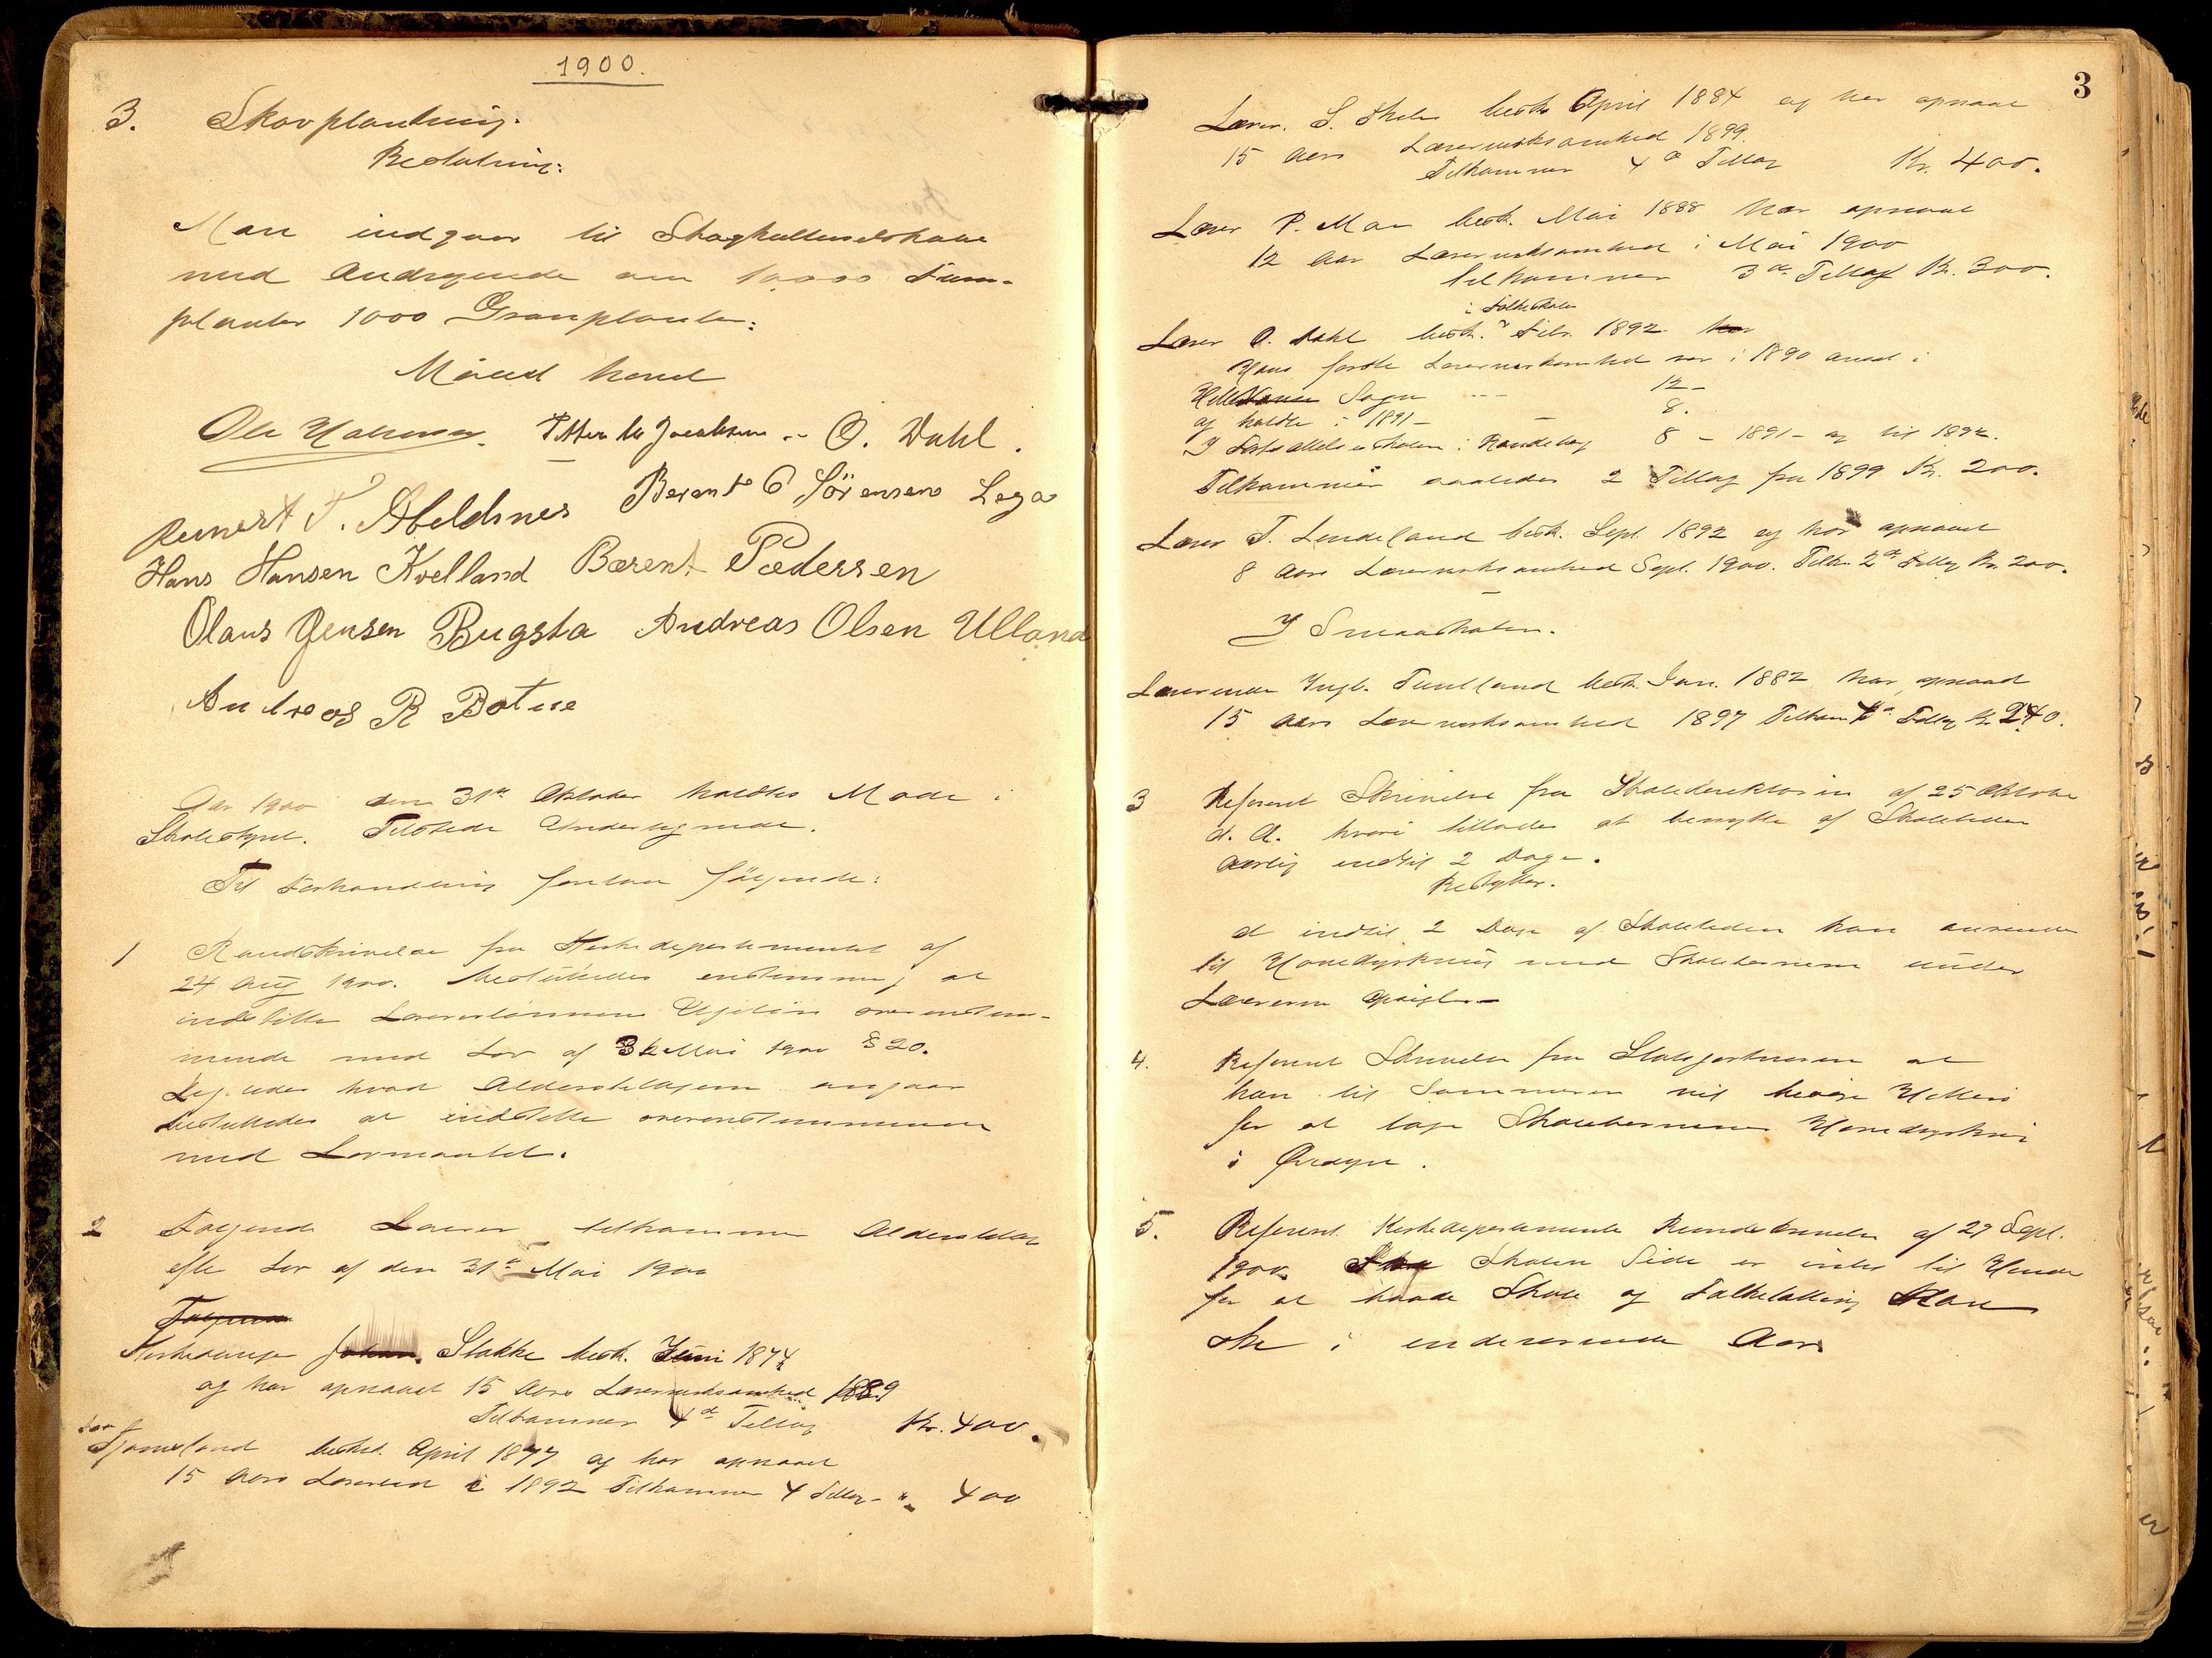 1900.
3. Skovplantning.
Beslutning:
Man indgaar til
med Andragende om 10000 Furu-
planter 1000 Granplanter.
Møded hevet
Ole Halvorsen. Peter M Jacobsen - O. Dahl.
Reinert T. Abelsnes Berent O Sörensen Lega
Hans Hansen Kvelland Bærent Pedersen
Olaus Jensen Bugsta Andreas Olsen Ulland
Andreas R Botne
Aar 1900 den 31te Oktober holdtes Møde i
Skolestyret. Tilstede Undertegnede.
Til Forhandling foretoges følgende:
1 Rundskrivelse fra Kirkedepartementet af
24 Aug 1900. besluttedes enstemmig at
indstille Lærerlønnens Udgift i overenstem-
mende med Lov af 31 Mai 1900 § 20.
Ligeledes hvad Alderstillægene angaar
besluttedes at indstille overenstemmende
med Lovmaalet.
2 Følgende Lærer tilkommer Alderstillæg
efter Lov af den 31te Mai 1900
Følgende
Kirkesanger Johan. Stakke besk. Juni 1874
og har opnaaet 15 Aars Lærervirksomhed 1889
Tilkommer 4de Tillæg Kr. 400.
Lær Fjømeland beskik. April 1877 og har opnaaet
15 Aars Lærertid i 1892 Tilkommer 4 Tillæg - " 400
3
Lærer. S. besk. April 1884 og har opnaaet
15 Aars Lærervirksomhed 1899.
Tilkommer 4de Tillæg Kr. 400.
Lærer P. Moe besk. Mai 1888 har opnaaet
12 Aar Lærervirksomhed i Mai 1900
tilkommer 3die Tillæg Kr. 300.
i Folkeskolen
Lærer O. Dahl besk. i Febr. 1892. har
Hans første Lærervirksomhed var i 1890 ansat i
Sogn --- 12 -
og holdte i 1891 - - 8.
I Fortsættelsesskolen i 8 - 1891 - og til 1892.
Tilkommer saaledes 2 Tillæg fra 1899 Kr. 200.
Lærer T. Lindeland besk. Sept. 1892 og har opnaaet
8 Aars Lærervirksomhed Sept. 1900. Tilk. 2det Tillæg Kr. 200.
I Smaaskolen.
Lærerinde Ingb. Tuelland besk. Jan. 1882 har opnaaet
15 Aars Lærervirksomhed 1897 Tilkom. Tillæg Kr. 240.
3 Referert Skrivelse fra Skoledirektøren af 25 Oktober
d. A. hvori tillades at benytte af Skoletiden
aarlig indtil 2 Dage.
Besluttet.
at indtil 2 Dage af Skoletiden kan anvendes
til Havedyrkning med Skolebørnene under
Lærerens Opsigt.-
4. Referert Skrivelse fra Statsgartneren at
han til Sommeren vil
for at tage Skolebørnenes Havedyrkning
i Øiesyn.
5. Referert Kirkedepartementets Rundskrivelse af 29 Sept.
1900. Fra Skolens Side er intet til Hinder
for at baade Skole og Folketælling kan
ske i indeværende Aar.